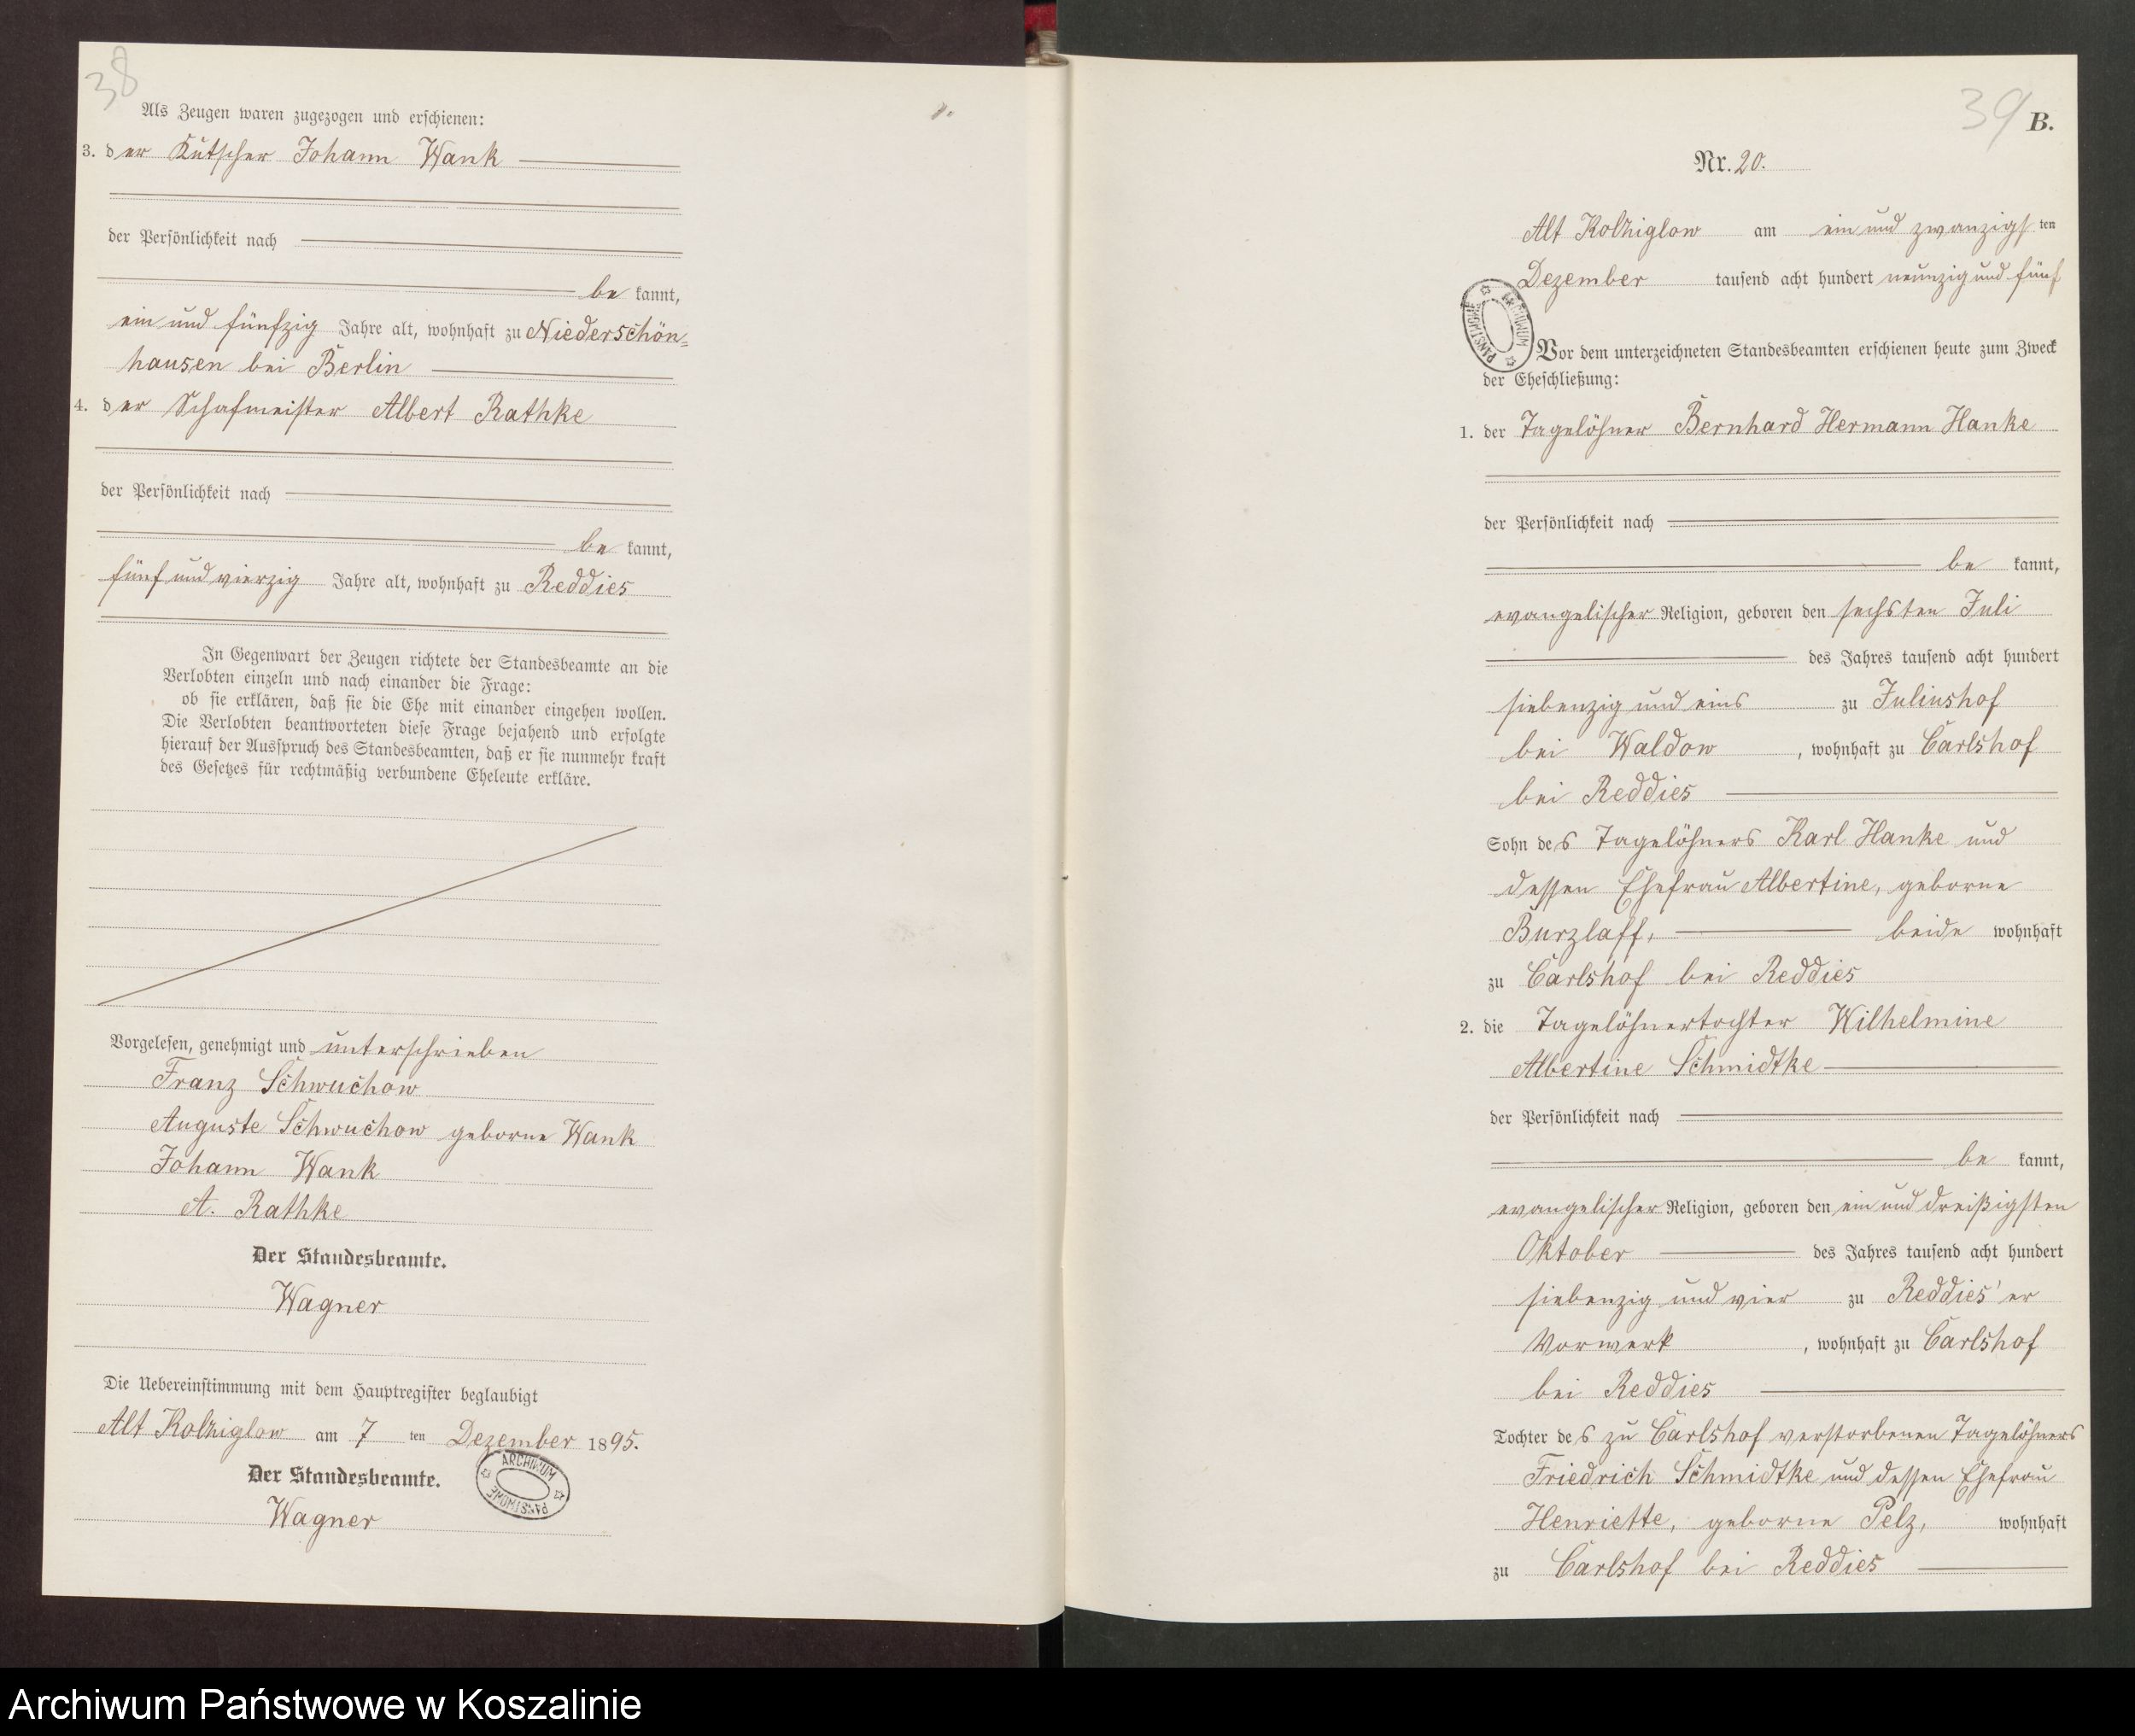 38
Als Zeugen waren zugezogen und erschienen:
3. der Kutscher Johann Wank
der Persönlichkeit nach
be kannt,
ein und fünfzig Jahre alt, wohnhaft zu Niederschön=
hausen bei Berlin
4. der Schafmeister Albert Rathke
der Persönlichkeit nach
be kannt,
fünf und vierzig Jahre alt, wohnhaft zu Reddies
In Gegenwart der Zeugen richtete der Standesbeamte an die
Verlobten einzeln und nach einander die Frage:
ob sie erklären, daß sie die Ehe mit einander eingehen wollen.
Die Verlobten beantworteten diese Frage bejahend und erfolgte
hierauf der Ausspruch des Standesbeamten, daß er sie nunmehr kraft
des Gesetzes für rechtmäßig verbundene Eheleute erkläre.
Vorgelesen, genehmigt und unterschrieben
Franz Schwuchow
Auguste Schwuchow geborne Wank
Johann Wank
A. Rathke
Der Standesbeamte.
Wagner
Die Uebereinstimmung mit dem Hauptregister beglaubigt
Alt Kolziglow am 7 ten Dezember 1895.
Der Standesbeamte.
Wagner
ARCHIWUM PAŃSTWOWE
39
B.
Nr. 20.
Alt Kolziglow am ein und zwanzigsten
Dezember tausend acht hundert neunzig und fünf
ARCHIWUM PAŃSTWOWE
Vor dem unterzeichneten Standesbeamten erschienen heute zum Zweck
der Eheschließung:
1. der Tagelöhner Bernhard Hermann Hanke
der Persönlichkeit nach
be kannt,
evangelischer Religion, geboren den sechsten Juli
des Jahres tausend acht hundert
siebenzig und eins zu Juliushof
bei Waldow, wohnhaft zu Carlshof
bei Reddies
Sohn des Tagelöhners Karl Hanke und
dessen Ehefrau Albertine, geborne
Burzlaff, beide wohnhaft
zu Carlshof bei Reddies
2. die Tagelöhnertochter Wilhelmine
Albertine Schmidtke
der Persönlichkeit nach
be kannt,
evangelischer Religion, geboren den ein und dreißigsten
Oktober des Jahres tausend acht hundert
siebenzig und vier zu Reddies'er
Vorwerk, wohnhaft zu Carlshof
bei Reddies
Tochter des zu Carlshof verstorbenen Tagelöhners
Friedrich Schmidtke und dessen Ehefrau
Henriette, geborne Pelz, wohnhaft
zu Carlshof bei Reddies
Archiwum Państwowe w Koszalinie